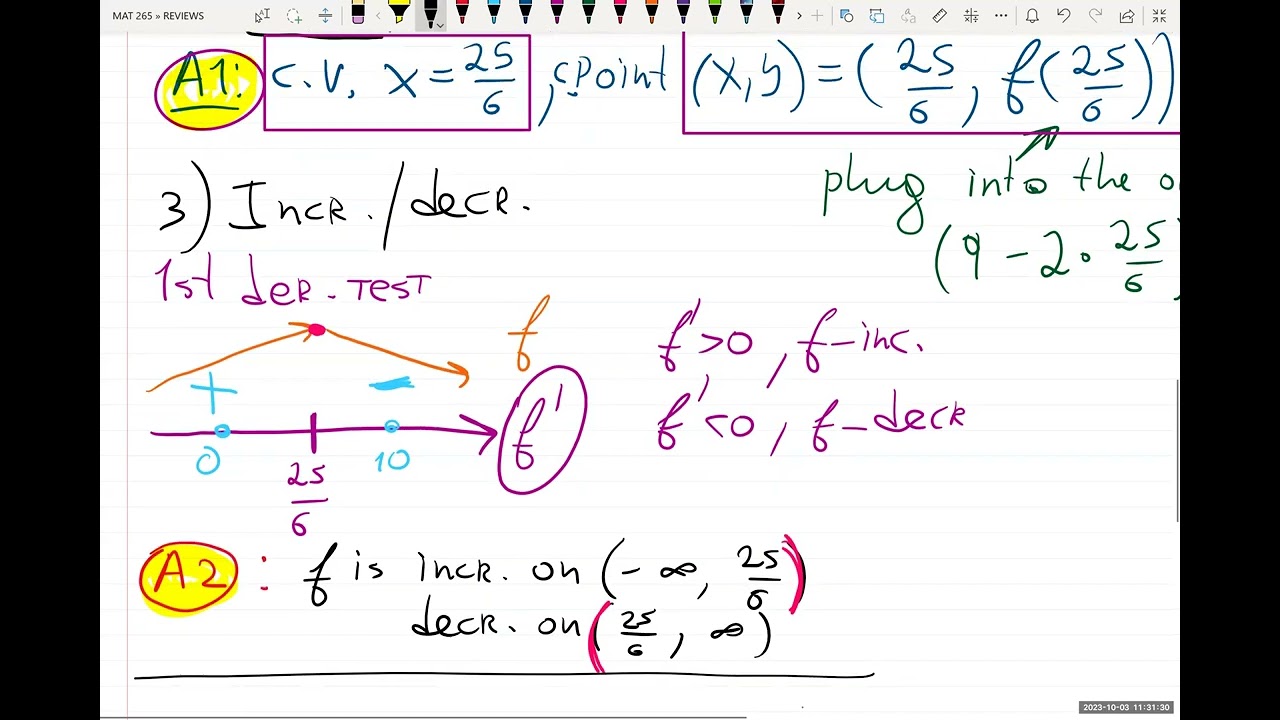 MAT 265 » REVIEWS
A1: C.V. x = 25/6 , c.Point (x,y) = (25/6, f(25/6))
plug into the o
(9 - 2 · 25/6
3) Incr./decr.
1st der. TEST
f
+ −
0 25/6 10
f'
f' > 0 , f - inc.
f' < 0 , f - decr
A2 : f is incr. on (-∞, 25/6)
decr. on (25/6, ∞)
2023-10-03 11:31:30